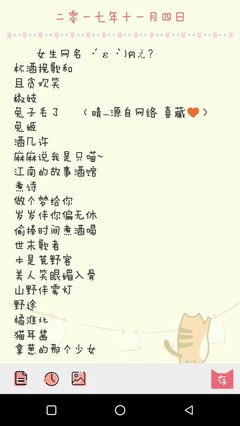 二零一七年十一月四日
女生网名 ·´ε`·)ฅえ?
杯酒挽歌和
且贪欢笑
椒妓
兔子毛了 （晴_源自网络 喜藏🧡）
兔姬
酒几许
麻麻说我是只喵~
江南的故事酒馆
煮诗
做个梦给你
岁岁伴你偏无休
偷捧时间煮酒喝
世末歌者
中是荒野客
美人笑眼媚入骨
山野伴雾灯
野途
橘淮北
猫耳酱
拿葱的那个少女
存